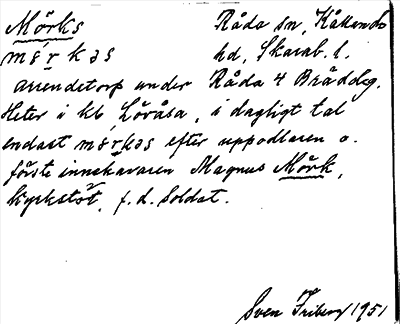 Mörks Råda sn, Kållands
mörkəs hd, Skarab. l.
arrendetorp under Råda 4 Bråddeg.
Heter i kb Lövåsa, i dagligt tal
endast mörkəs efter uppodlaren o.
förste innehavaren Magnus Mörk,
kyrkstöt, f.d. soldat.
Sven Friberg 1951